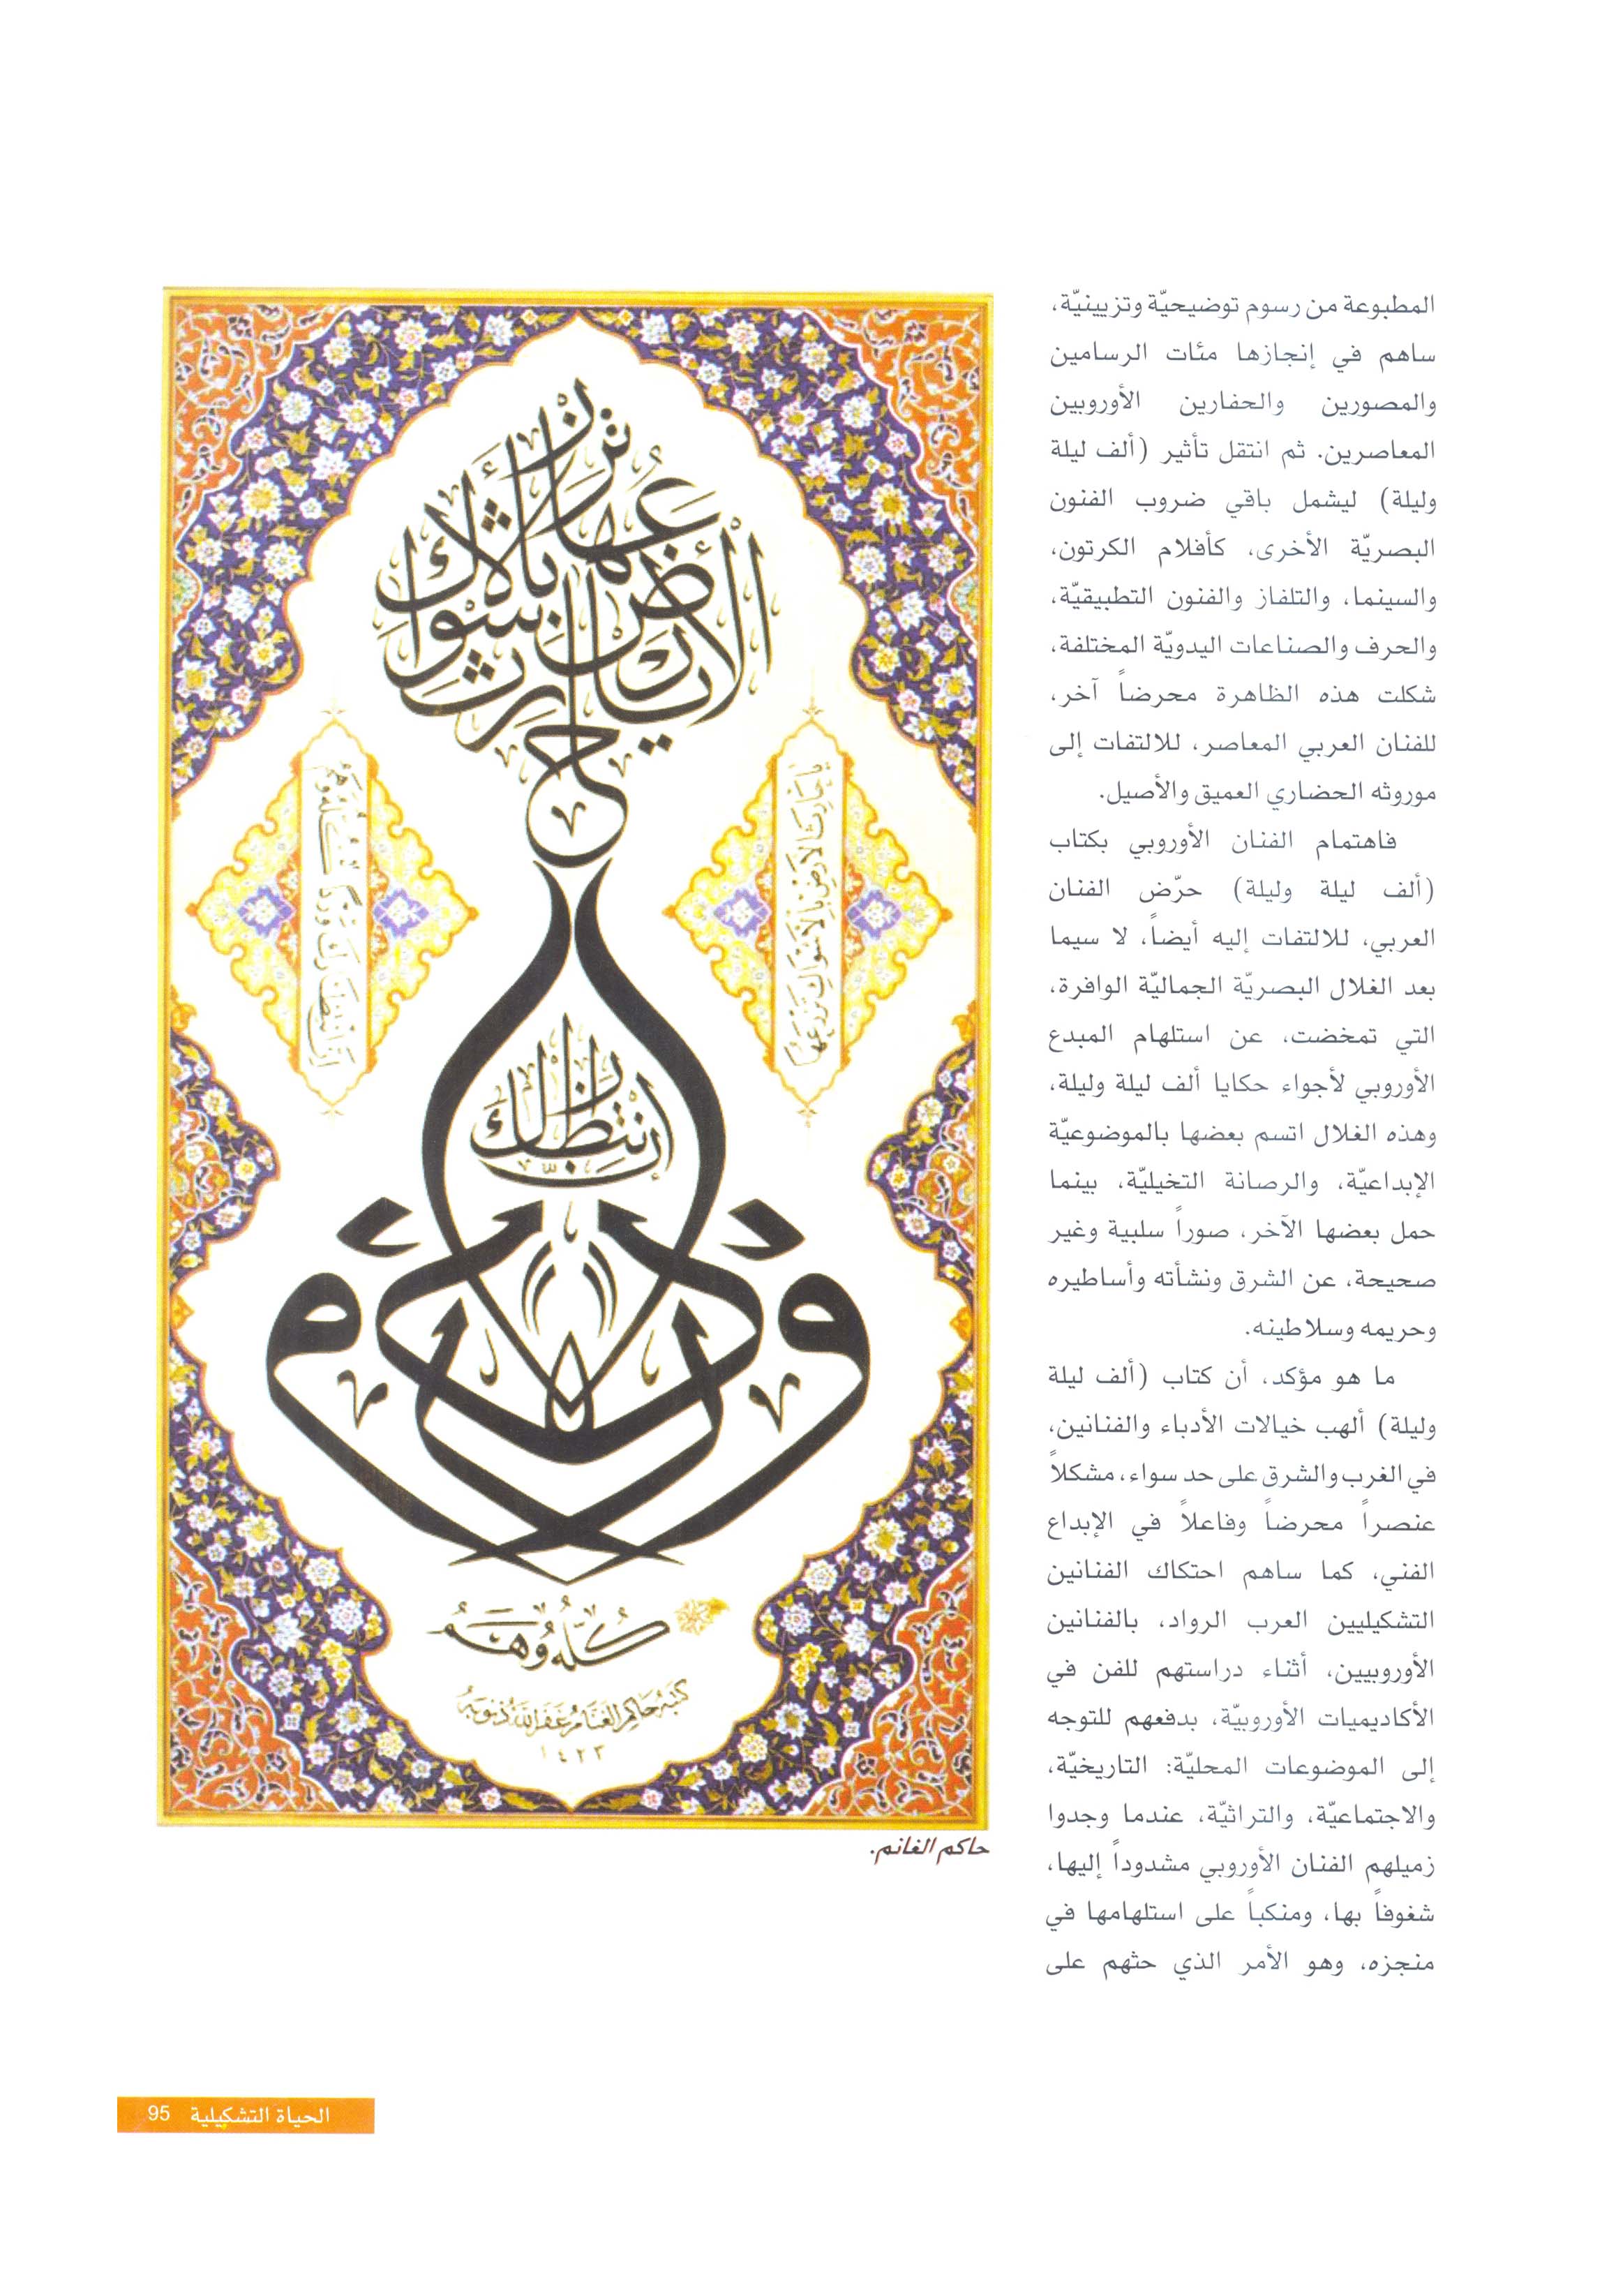 المطبوعة من رسوم توضيحيّة وتزيينيّة،
ساهم في إنجازها مئات الرسامين
والمصورين والحفارين الأوروبين
المعاصرين. ثم انتقل تأثير (ألف ليلة
وليلة) ليشمل باقي ضروب الفنون
البصريّة الأخرى، كأفلام الكرتون،
والسينما، والتلفاز والفنون التطبيقيّة،
والحرف والصناعات اليدويّة المختلفة،
شكلت هذه الظاهرة محرضاً آخر،
للفنان العربي المعاصر، للالتفات إلى
موروثه الحضاري العميق والأصيل.
فاهتمام الفنان الأوروبي بكتاب
(ألف ليلة وليلة) حرّض الفنان
العربي، للالتفات إليه أيضاً، لا سيما
بعد الغلال البصريّة الجماليّة الوافرة،
التي تمخضت، عن استلهام المبدع
الأوروبي لأجواء حكايا ألف ليلة وليلة،
وهذه الغلال اتسم بعضها بالموضوعيّة
الإبداعيّة، والرصانة التخيليّة، بينما
حمل بعضها الآخر، صوراً سلبية وغير
صحيحة، عن الشرق ونشأته وأساطيره
وحريمه وسلاطينه.
ما هو مؤكد، أن كتاب (ألف ليلة
وليلة) ألهب خيالات الأدباء والفنانين،
في الغرب والشرق على حد سواء، مشكلاً
عنصراً محرضاً وفاعلاً في الإبداع
الفني، كما ساهم احتكاك الفنانين
التشكيليين العرب الرواد، بالفنانين
الأوروبيين، أثناء دراستهم للفن في
الأكاديميات الأوروبيّة، بدفعهم للتوجه
إلى الموضوعات المحليّة: التاريخيّة،
والاجتماعيّة، والتراثيّة، عندما وجدوا
زميلهم الفنان الأوروبي مشدوداً إليها،
شغوفاً بها، ومنكباً على استلهامها في
منجزه، وهو الأمر الذي حثهم على
يا حارث الأرض بالأشواك تزرعها
إن انتظارك
كله وهم
كتبه حاكم الغنام غفر الله ذنوبه
١٤٢٣
حاكم الغانم.
الحياة التشكيلية 95